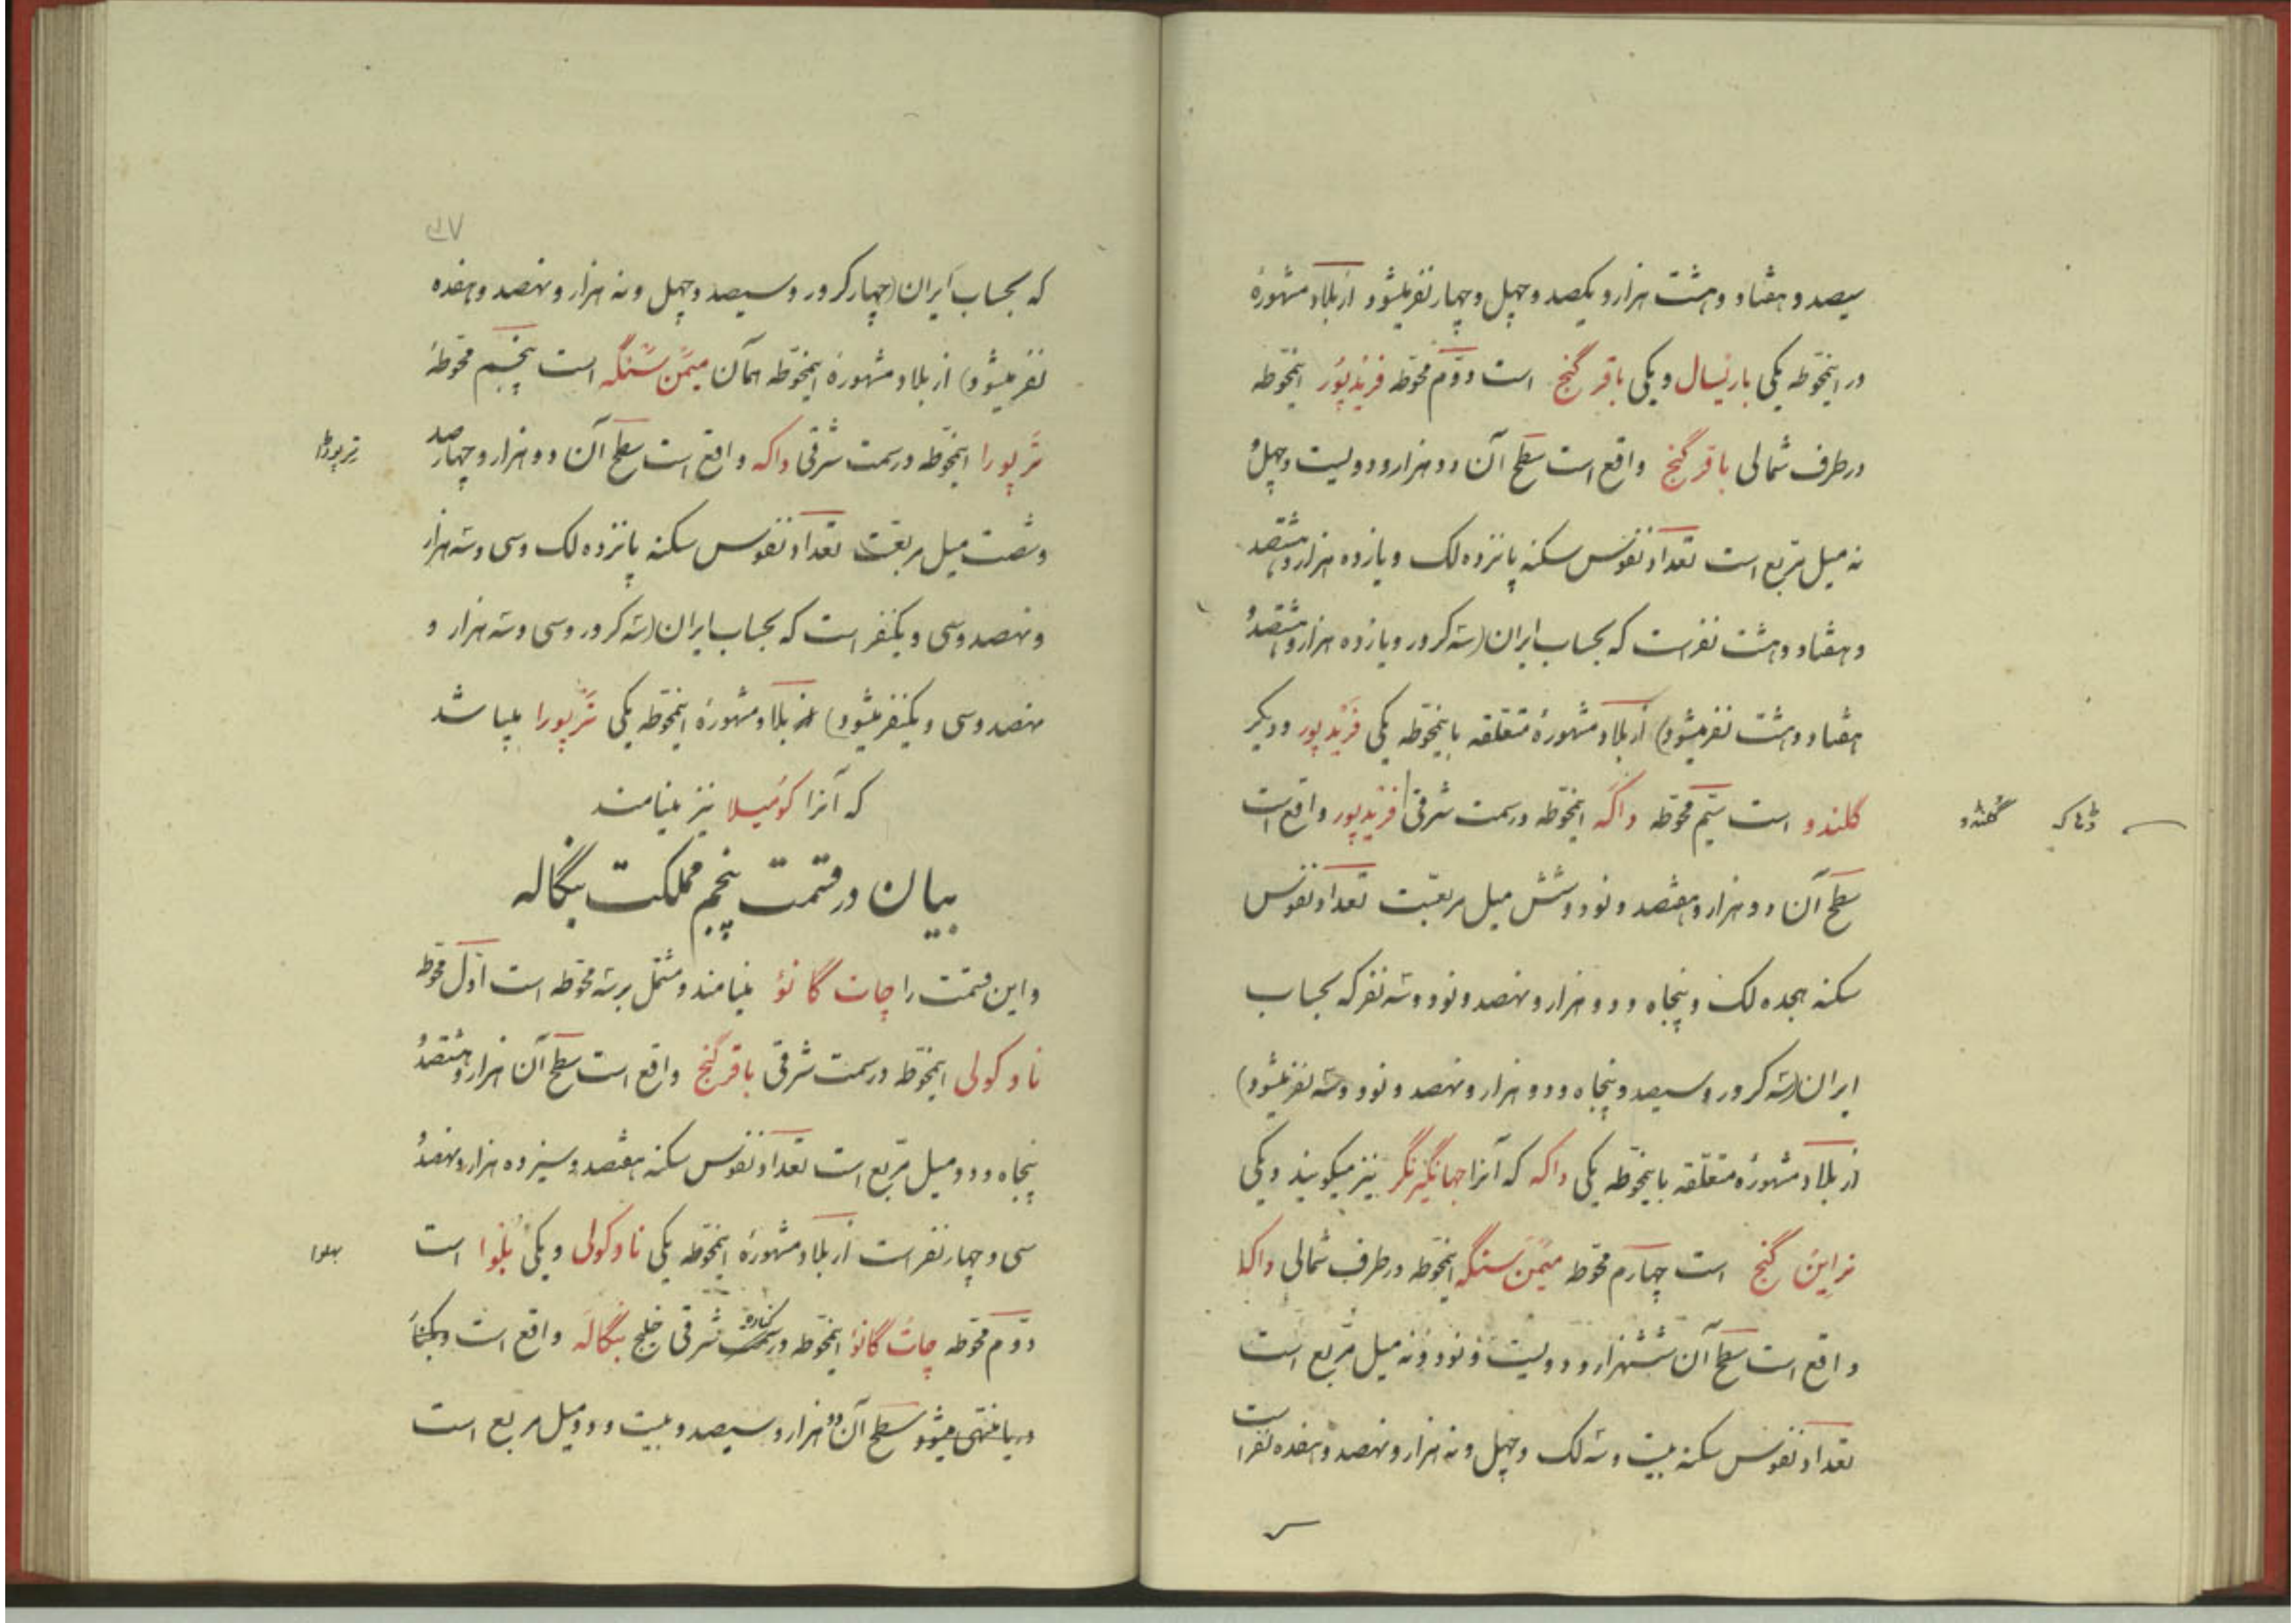 سیصد و هفتاد و هشت هزار و یکصد و چهل و چهار نفر میشود از بلاد مشهورهٔ
در اینمحوّطه یکی باریسال و یکی باقر گنج است دوّم محوّطه فریدپُور اینمحوّطه
در طرف شمالی باقر گنج واقع است سطح آن دو هزار و دویست و چهل و
نه میل مربّع است تعداد نفوس سکنه پانزده لک و یازده هزار و هشتصد
و هفتاد و هشت نفر است که بحساب ایران (سه کرور و یازده هزار و هشتصد و
هفتاد و هشت نفر میشود) از بلاد مشهورهٔ متعلقه باینمحوّطه یکی فریدپور و دیگر
گلندو است سیّم محوّطه داکه اینمحوّطه در سمت شرقی فریدپور واقع است
ڈهاکه
سطح آن دو هزار و هفتصد و نود و شش میل مربعست تعداد نفوس
سکنه هجده لک و پنجاه و دو هزار و نهصد و نود و سه نفر که بحساب
ایران (سه کرور و سیصد و پنجاه و دو هزار و نهصد و نود و سه نفر میشود)
از بلاد مشهورهٔ متعلقه باینمحوّطه یکی داکه که آنرا جهانگیرنگر نیز میگویند و یکی
نراین گنج است چهارم محوّطه میمن سنگه اینمحوّطه در طرف شمالی داکا
واقع است سطح آن ششهزار و دویست و نود و نه میل مربع است
تعداد نفوس سکنه بیست و سه لک و چهل و نه هزار و نهصد و هفده نفر است
که بحساب ایران (چهار کرور و سیصد و چهل و نه هزار و نهصد و هفده
نفر میشود) از بلاد مشهورهٔ اینمحوّطه همان میمن سنگه است پنجم محوّطهٔ
ترپورا اینمحوّطه در سمت شرقی داکه واقع است سطح آن دو هزار و چهارصد
ترپوڑا
و شصت میل مربعست تعداد نفوس سکنه پانزده لک و سی و سه هزار
و نهصد و سی و یکنفر است که بحساب ایران (سه کرور و سی و سه هزار و
نهصد و سی و یکنفر میشود) از بلاد مشهورهٔ اینمحوّطه یکی ترپورا میباشد
که آنرا کومیلا نیز مینامند
بیان در قسمت پنجم مملکت بنگاله
و این قسمت را چات گانؤ مینامند و مشتمل بر سه محوّطه است اوّل محوّطه
ناوکولی اینمحوّطه در سمت شرقی باقر گنج واقع است سطح آن هزار و هشتصد و
پنجاه و دو میل مربّع است تعداد نفوس سکنه هفتصد و سیزده هزار و نهصد و
سی و چهار نفر است از بلاد مشهورهٔ اینمحوّطه یکی ناوکولی و یکی بلوا است
بهلوا
دوّم محوّطه چات گانؤ اینمحوّطه در سمت کناره شرقی خلیج بنگاله واقع است و بکنار
دریا منتهی میشود سطح آن دو هزار و سیصد و بیست و دو میل مربع است